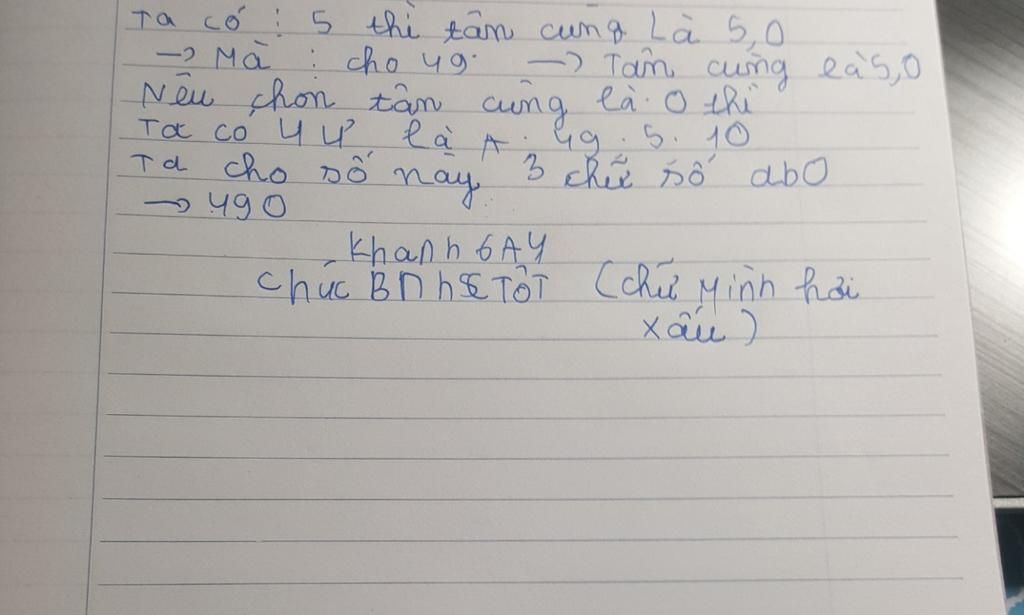 Ta có : 5 thì tận cùng Là 5,0
→ Mà : cho 49 → Tận cùng là 5,0
Nếu chọn tận cùng là 0 thì
Ta có 4 Ư là A. 49. 5. 10
Ta cho số này 3 chữ số ab0
→ 490
Khanh 6A4
Chúc Bạn h TỐT (chữ Mình hơi
xấu)